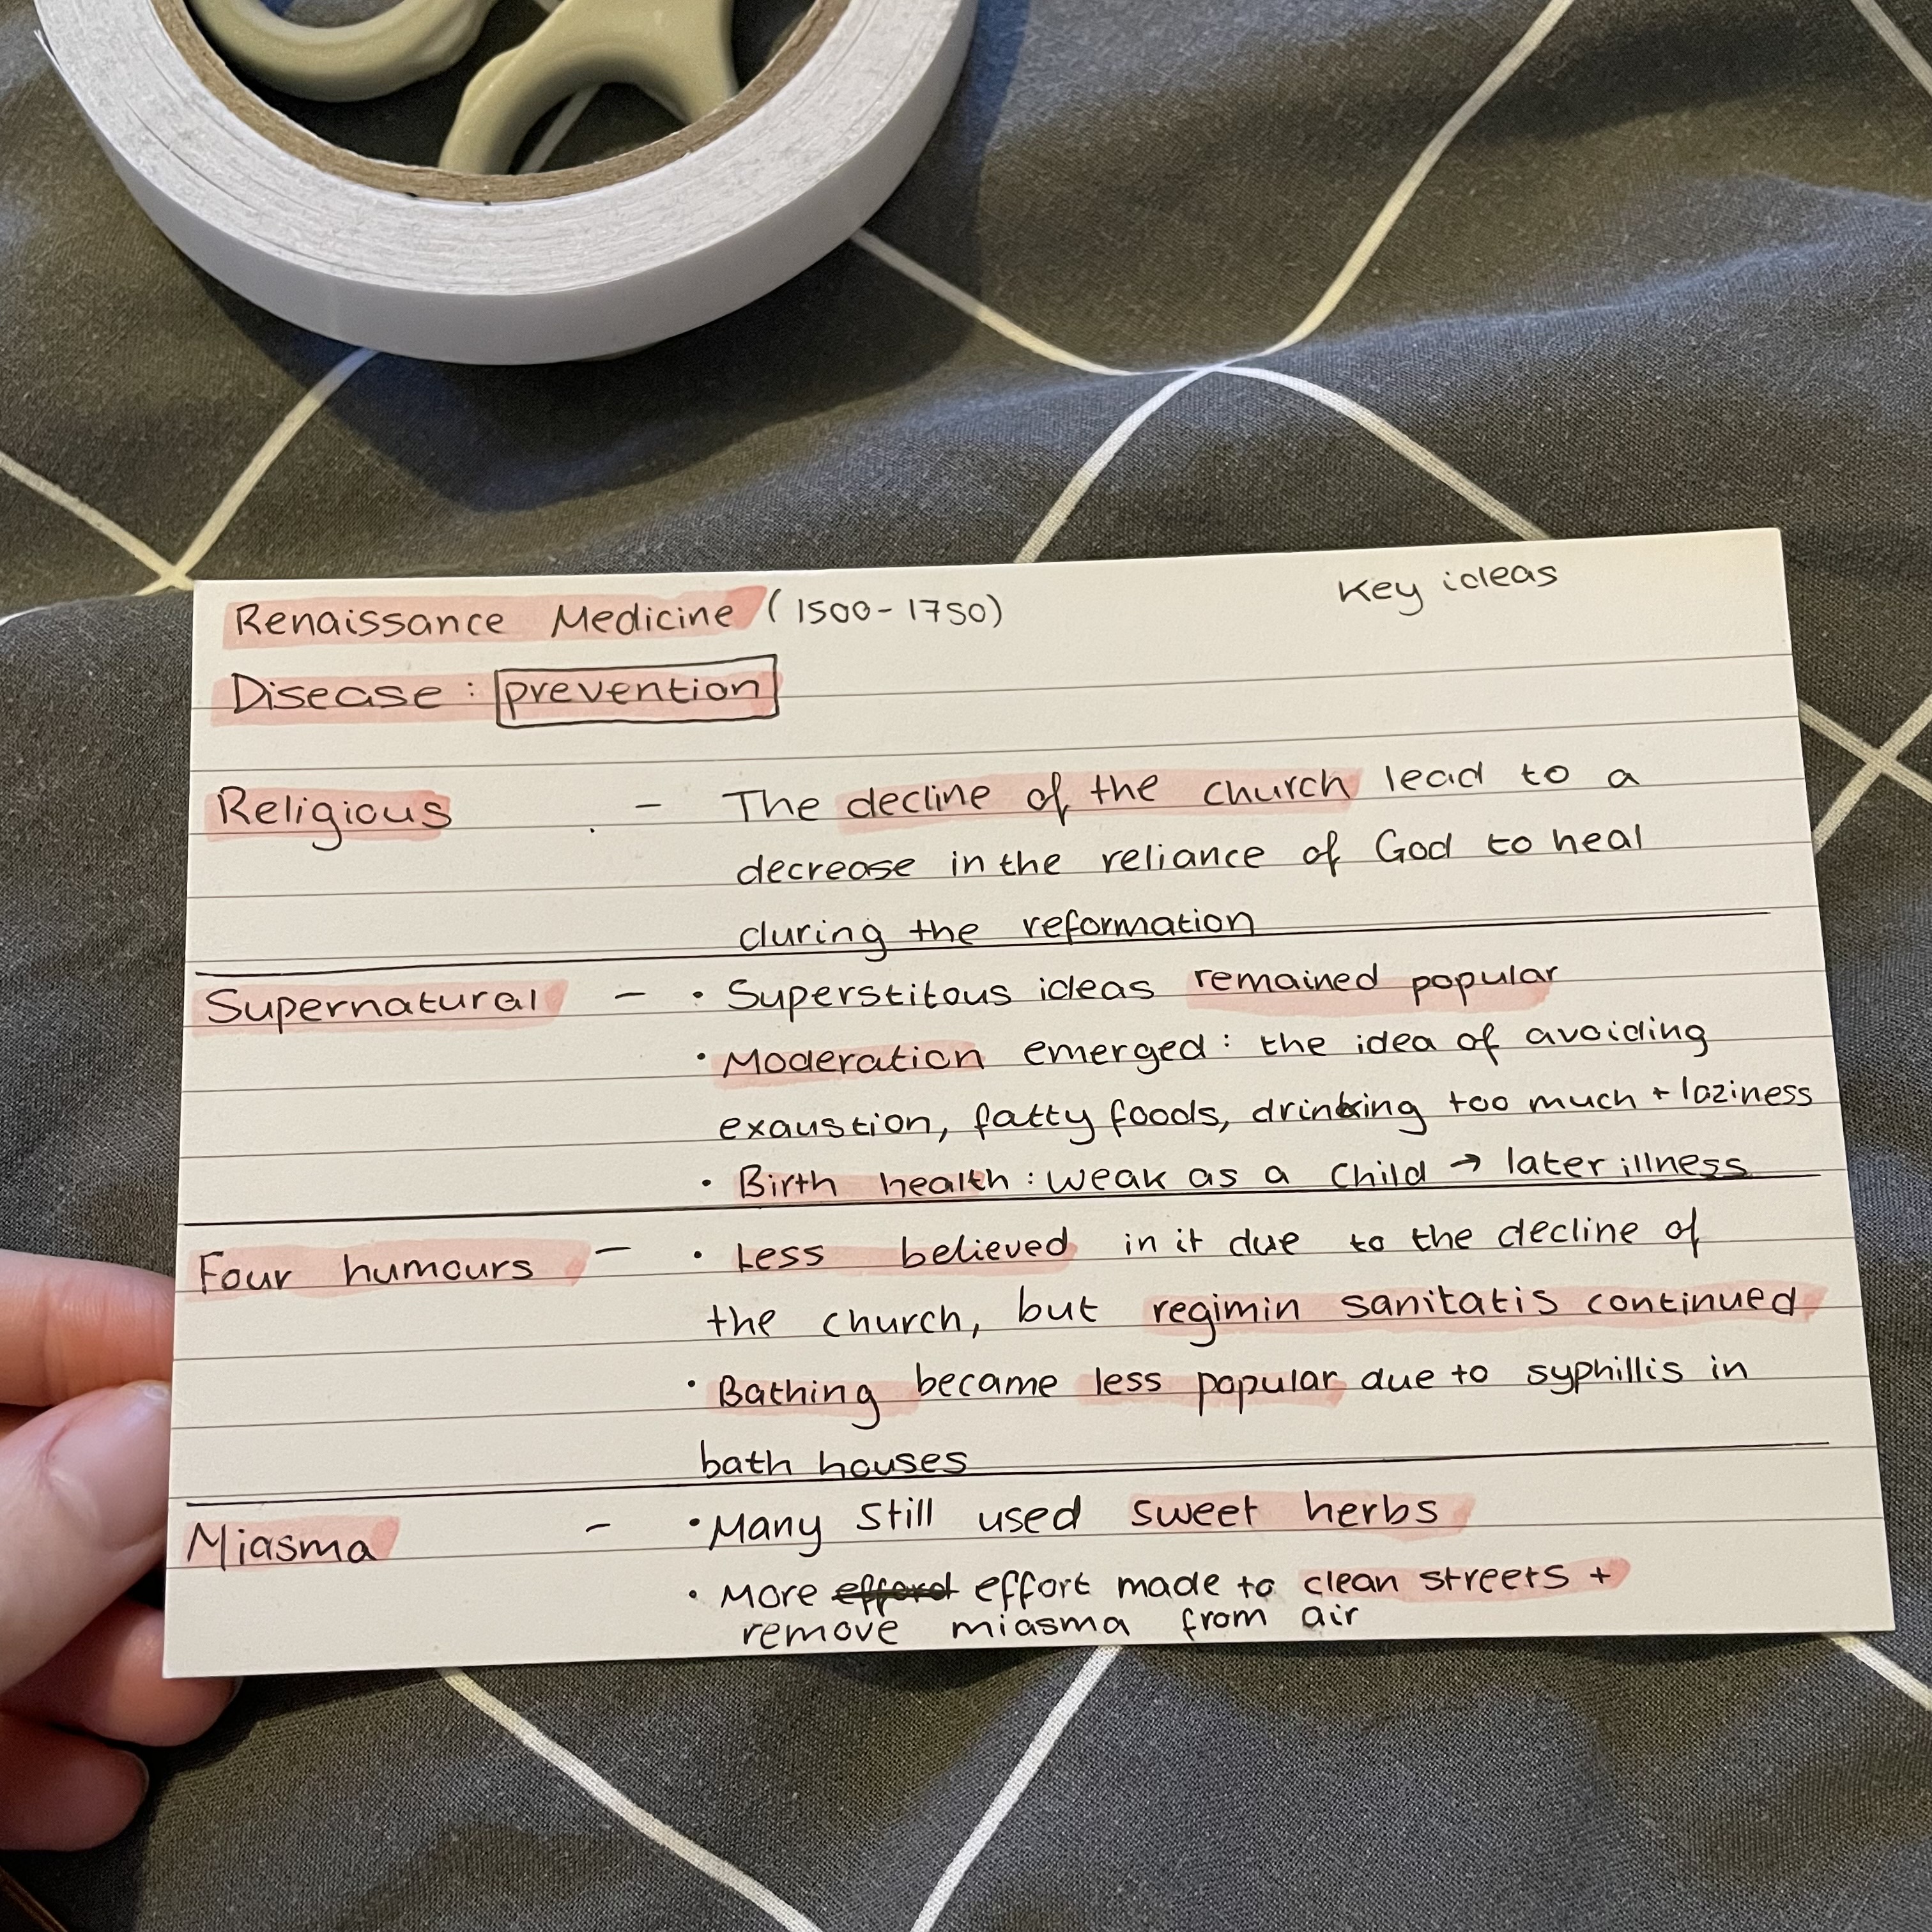 Renaissance Medicine (1500-1750)
Key ideas
Disease: prevention
Religious - The decline of the church lead to a
decrease in the reliance of God to heal
during the reformation
Supernatural - • Superstitous ideas remained popular
• Moderation emerged: the idea of avoiding
exaustion, fatty foods, drinking too much + laziness
• Birth health: weak as a child → later illness
Four humours - • Less believed in it due to the decline of
the church, but regimin sanitatis continued
• Bathing became less popular due to syphillis in
bath houses
Miasma - • Many still used sweet herbs
• More effort made to clean streets +
remove miasma from air